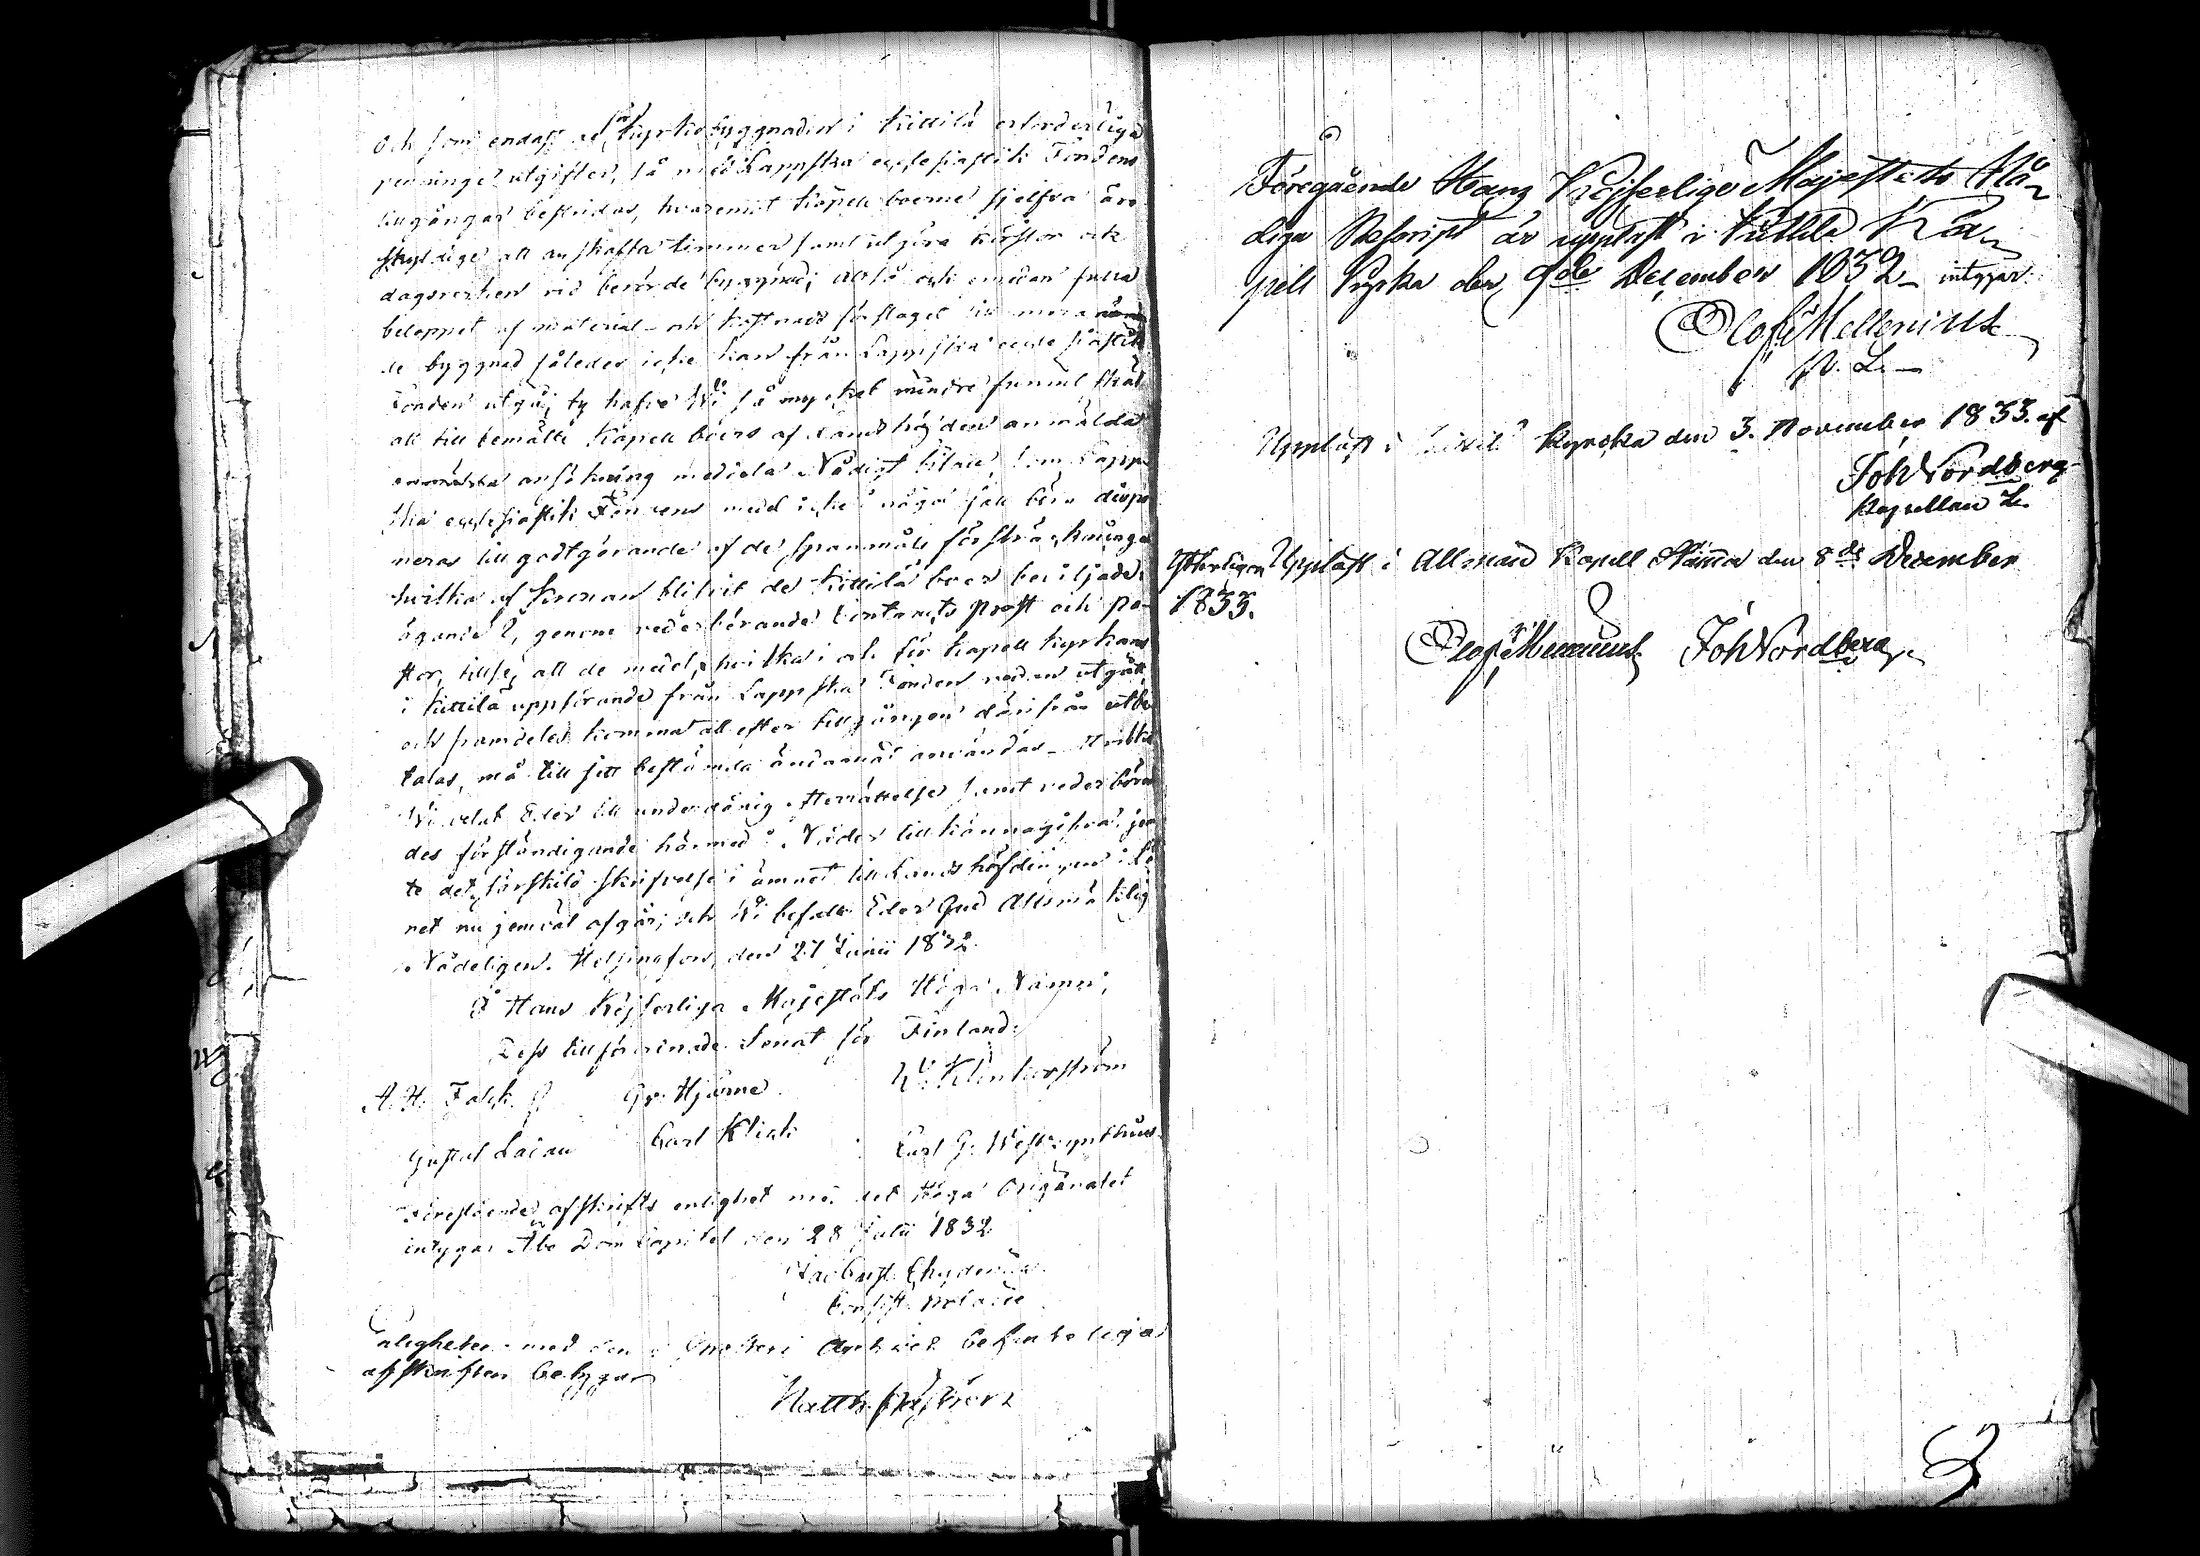 och som endast de för Kyrkobyggnaden i Kittilä erforderliga
penninge utgifter, få med Lappska ecclesiastik Fondens
tillgångar bestridas, hvaremot Kapell boerne sjelfva äro
skyldige att anskaffa timmer samt utgöra körslor och
dagsverken vid berörde byggnad; Altså och emedan fulla
beloppet af material- och kostnads förslaget till mera
de byggnad således icke kan från Lappska ecclesiastik
Fonden utgå; ty hafve Wi så mycket mindre funnit skäl
att till bemälte Kapell boers af Landshöfden anmälda
ansökning meddela Nådigt bifall, som Lapp-
ska ecclesiastik Fondens medel icke i något fall böra dispo
neras till godtgörande af de spannmåls försträckningar
hvilka af Kronan blifvit de Kittilä boer beviljade;
ägande I, genom vederbörande Contracts Prost och Pa-
stor, tillse, att de medel, hvilka i och för Kapell Kyrkans
i Kittilä uppförande från Lappska Fonden redan utgått
och framdeles komma att efter tillgången därifrån utbe
talas, må till sitt bestämda ändamål användas. Hvilket
Wi velat Eder till underdånig efterrättelse samt vederböran
des förständigande härmed i Nåder tillkännagifva,
te det särskild skrifvelse i ämnet till Landshöfdingen i Lä
net nu jemväl afgår; och Wi befalle Eder Gud Allsmäktig
Nådeligen. Helsingfors, den 27 Junii 1832.
I Hans Kejserliga Majestäts Höga Namn,
Dess tillförordnade Senat för Finland:
A. H. Falck. G. Hjärne. W. Klinkowström
Gustaf Ladau Carl Klick Carl G.
Förestående afskrifts enlighet med det Höga Originalet
intygar Åbo Domkapitel den 28 Julii 1832
Jac Gust. Chydenius.
Consist. Notarie
Enligheten med den i Archivet befinteliga
afskriften betygar
Matth. Castrén
Föregående Hans Kejserliga Majestäts Nå-
diga Rescript är uppläst i Kittilä Ka-
pell Kyrka den 9de December 1832 intygar.
Olof Mellenius
V. L.
Uppläst i Kittilä Kyrcka den 3. November 1833. af
Joh Nordberg
Kapellan L.
Ytterligen Uppläst i Allmän Kapell Stämma den 8de December
1833.
Olof Mellenius Joh Nordberg